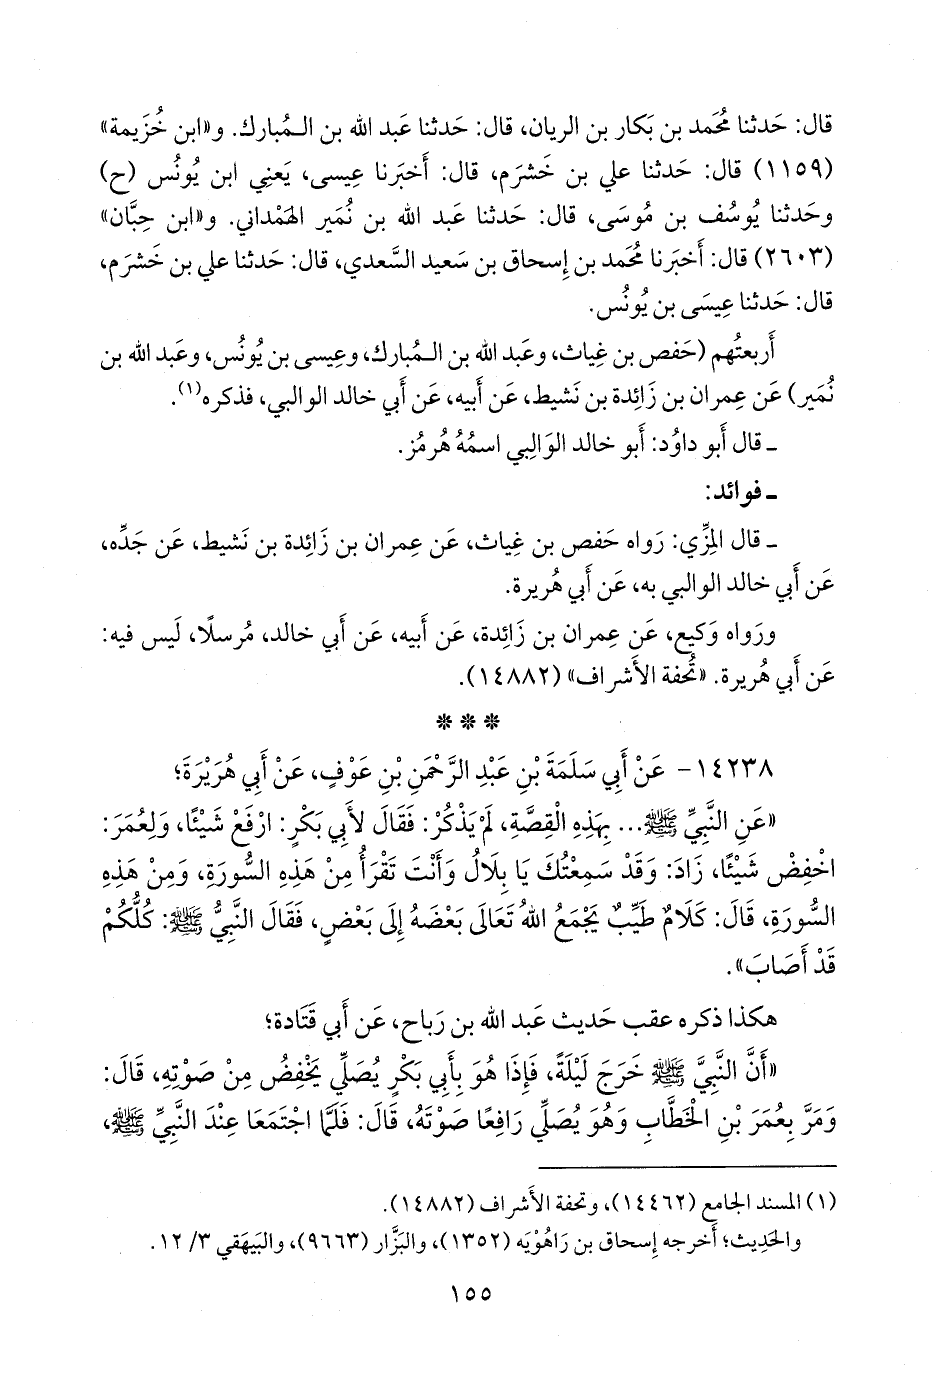 قال: حَدثنا مُحَمد بن بَكار بن الريان، قال: حَدثنا عَبد الله بن الـمُبارك. و«ابن خُزَيمة»
(١١٥٩) قال: حَدثنا علي بن خَشرَم، قال: أَخبَرنا عِيسى، يَعنِي ابن يُونُس (ح)
وحَدثنا يُوسُف بن مُوسَى، قال: حَدثنا عَبد الله بن نُمَير الهَمْداني. و«ابن حِبَّان»
(٢٦٠٣) قال: أَخبَرنا مُحَمد بن إِسحاق بن سَعيد السَّعدي، قال: حَدثنا علي بن خَشرَم،
قال: حَدثنا عِيسَى بن يُونُس.
أَربعتُهم (حَفص بن غِياث، وعَبد الله بن الـمُبارك، وعِيسى بن يُونُس، وعَبد الله بن
نُمَير) عَن عِمران بن زَائِدة بن نَشيط، عَن أَبيه، عَن أَبي خالد الوالبي، فذكره(١).
ـ قال أَبو داوُد: أَبو خالد الوَالِبي اسمُهُ هُرمُز.
ـ فوائد:
ـ قال المِزِّي: رَواه حَفص بن غِياث، عَن عِمران بن زَائِدة بن نَشيط، عَن جَدِّه،
عَن أَبي خالد الوالبي به، عَن أَبي هُريرة.
ورَواه وَكيع، عَن عِمران بن زَائِدة، عَن أَبيه، عَن أَبي خالد، مُرسلًا، لَيس فيه:
عَن أَبي هُريرة. «تُحفة الأَشراف» (١٤٨٨٢).
* * *
١٤٢٣٨- عَنْ أَبِي سَلَمَةَ بْنِ عَبْدِ الرَّحْمَنِ بْنِ عَوْفٍ، عَنْ أَبِي هُرَيْرَةَ؛
«عَنِ النَّبِيِّ ﷺ... بِهَذِهِ الْقِصَّةِ، لَمْ يَذْكُرْ: فَقَالَ لأَبِي بَكْرٍ: ارْفَعْ شَيْئًا، وَلِعُمَرَ:
اخْفِضْ شَيْئًا، زَادَ: وَقَدْ سَمِعْتُكَ يَا بِلَالُ وَأَنْتَ تَقْرَأُ مِنْ هَذِهِ السُّورَةِ، وَمِنْ هَذِهِ
السُّورَةِ، قَالَ: كَلَامٌ طَيِّبٌ يَجْمَعُ اللهُ تَعَالَى بَعْضَهُ إِلَى بَعْضٍ، فَقَالَ النَّبِيُّ ﷺ: كُلُّكُمْ
قَدْ أَصَابَ».
هكذا ذكره عقب حَديث عَبد الله بن رَباح، عَن أَبي قَتادة؛
«أَنَّ النَّبِيَّ ﷺ خَرَجَ لَيْلَةً، فَإِذَا هُوَ بِأَبِي بَكْرٍ يُصَلِّي يَخْفِضُ مِنْ صَوْتِهِ، قَالَ:
وَمَرَّ بِعُمَرَ بْنِ الْخَطَّابِ وَهُوَ يُصَلِّي رَافِعًا صَوْتَهُ، قَالَ: فَلَمَّا اجْتَمَعَا عِنْدَ النَّبِيِّ ﷺ،
(١) المسند الجامع (١٤٤٦٢)، وتحفة الأَشراف (١٤٨٨٢).
والحَدِيث؛ أَخرجه إِسحاق بن رَاهُوْيَه (١٣٥٢)، والبَزَّار (٩٦٦٣)، والبَيهَقي ٣/ ١٢.
١٥٥